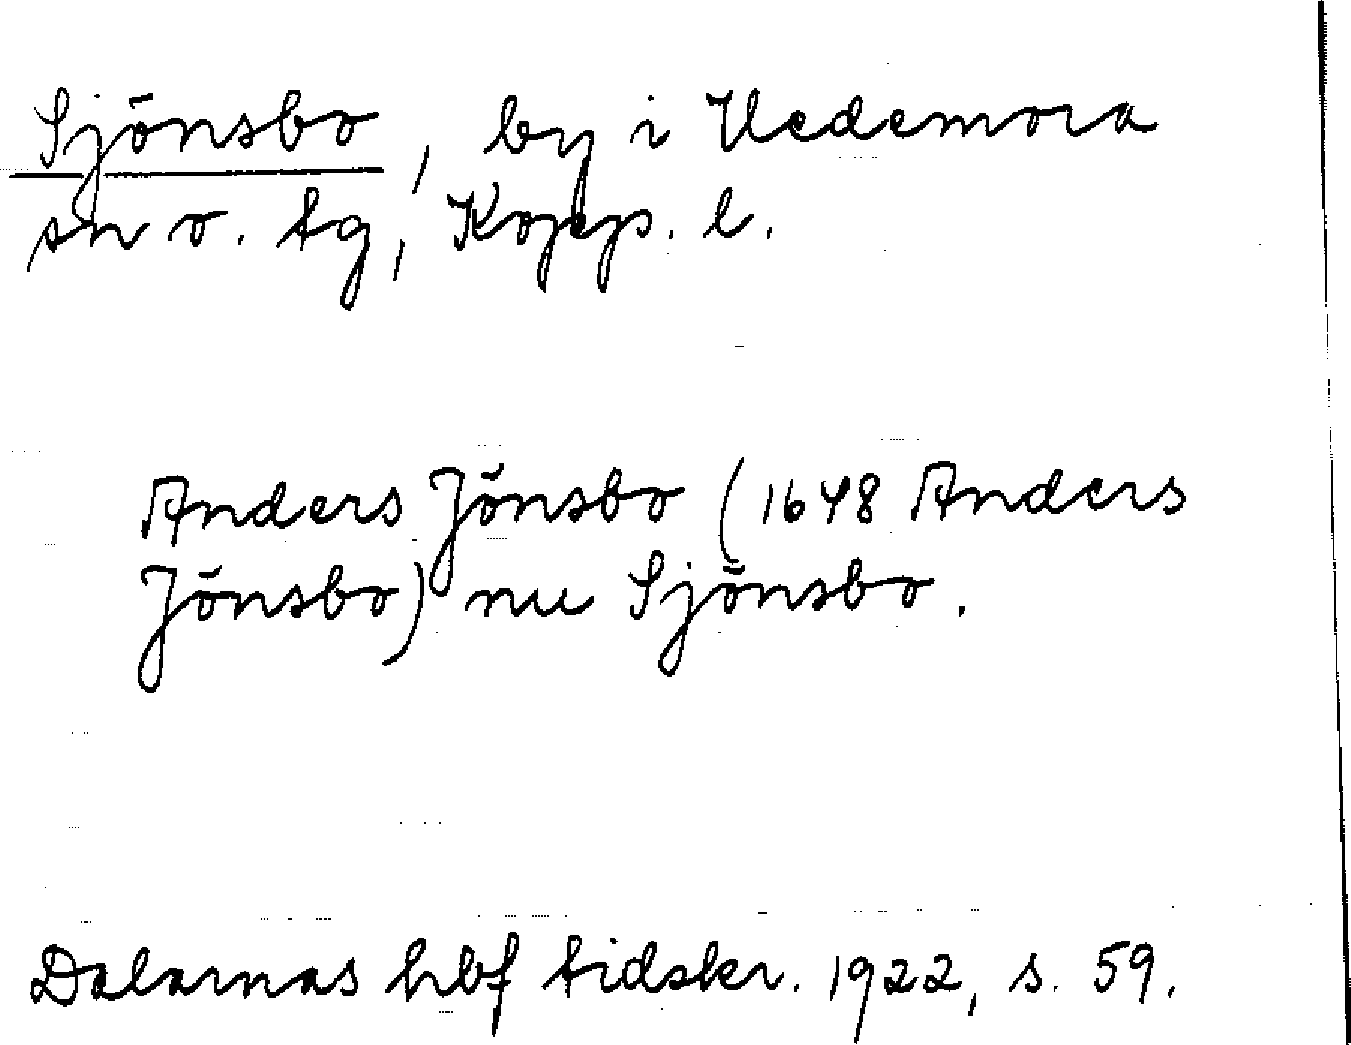 Sjönsbo, by i Vedemora
sn o. tg, Kopp. l.
Anders Jönsbo (1648 Anders
Jönsbo) nu Sjönsbo.
Dalarnas hbf tidskr. 1922, s. 59.